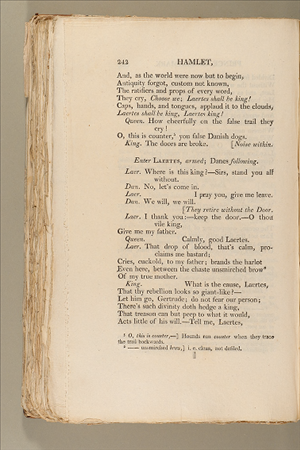 242 HAMLET,
And, as the world were now but to begin,
Antiquity forgot, custom not known,
The ratifiers and props of every word,
They cry, Choose we; Laertes shall be king!
Caps, hands, and tongues, applaud it to the clouds,
Laertes shall be king, Laertes king!
Queen. How cheerfully on the false trail they
cry!
O, this is counter,¹ you false Danish dogs.
King. The doors are broke. [Noise within.
Enter LAERTES, armed; Danes following.
Laer. Where is this king?—Sirs, stand you all
without.
Dan. No, let's come in.
Laer. I pray you, give me leave.
Dan. We will, we will.
[They retire without the Door.
Laer. I thank you:—keep the door.—O thou
vile king,
Give me my father.
Queen. Calmly, good Laertes.
Laer. That drop of blood, that's calm, pro-
claims me bastard;
Cries, cuckold, to my father; brands the harlot
Even here, between the chaste unsmirched brow²
Of my true mother.
King. What is the cause, Laertes,
That thy rebellion looks so giant-like?—
Let him go, Gertrude; do not fear our person;
There's such divinity doth hedge a king,
That treason can but peep to what it would,
Acts little of his will.—Tell me, Laertes,
¹ O, this is counter,—] Hounds run counter when they trace
the trail backwards.
² —— unsmirched brow,] i. e. clean, not defiled.